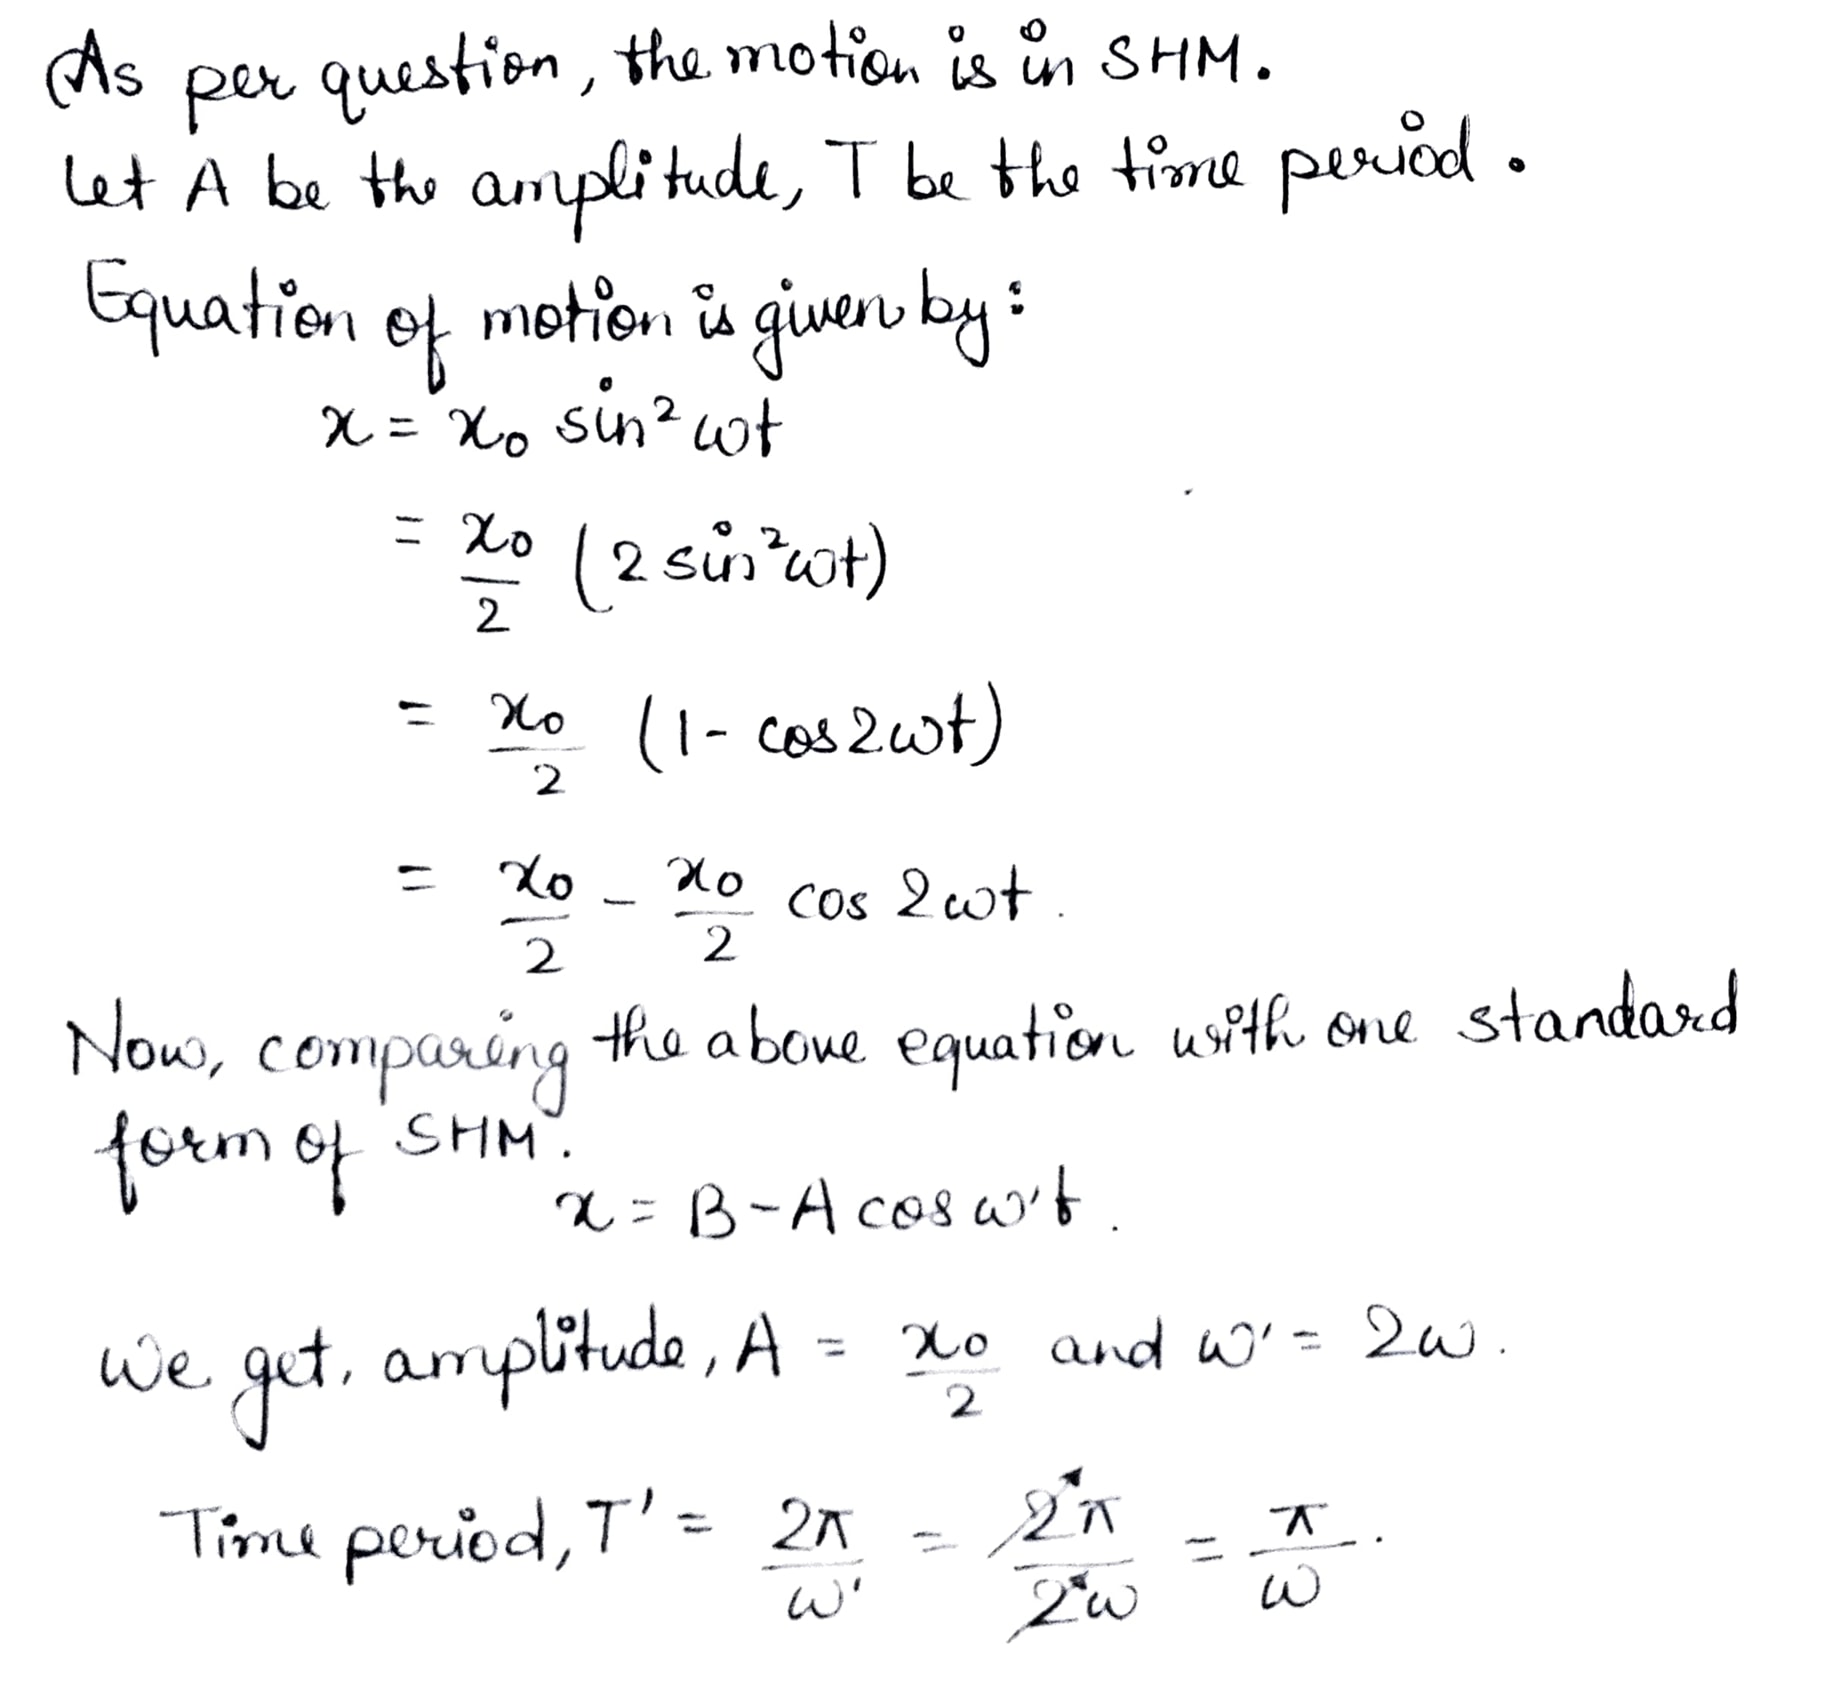 As per question, the motion is in SHM.
Let A be the amplitude, T be the time period.
Equation of motion is given by:
x = x₀ sin² ωt
= x₀/2 (2 sin² ωt)
= x₀/2 (1 - cos 2ωt)
= x₀/2 - x₀/2 cos 2ωt.
Now, comparing the above equation with one standard
form of SHM.
x = B - A cos ω't.
We get, amplitude, A = x₀/2 and ω' = 2ω.
Time period, T' = 2π/ω' = 2π/2ω = π/ω.